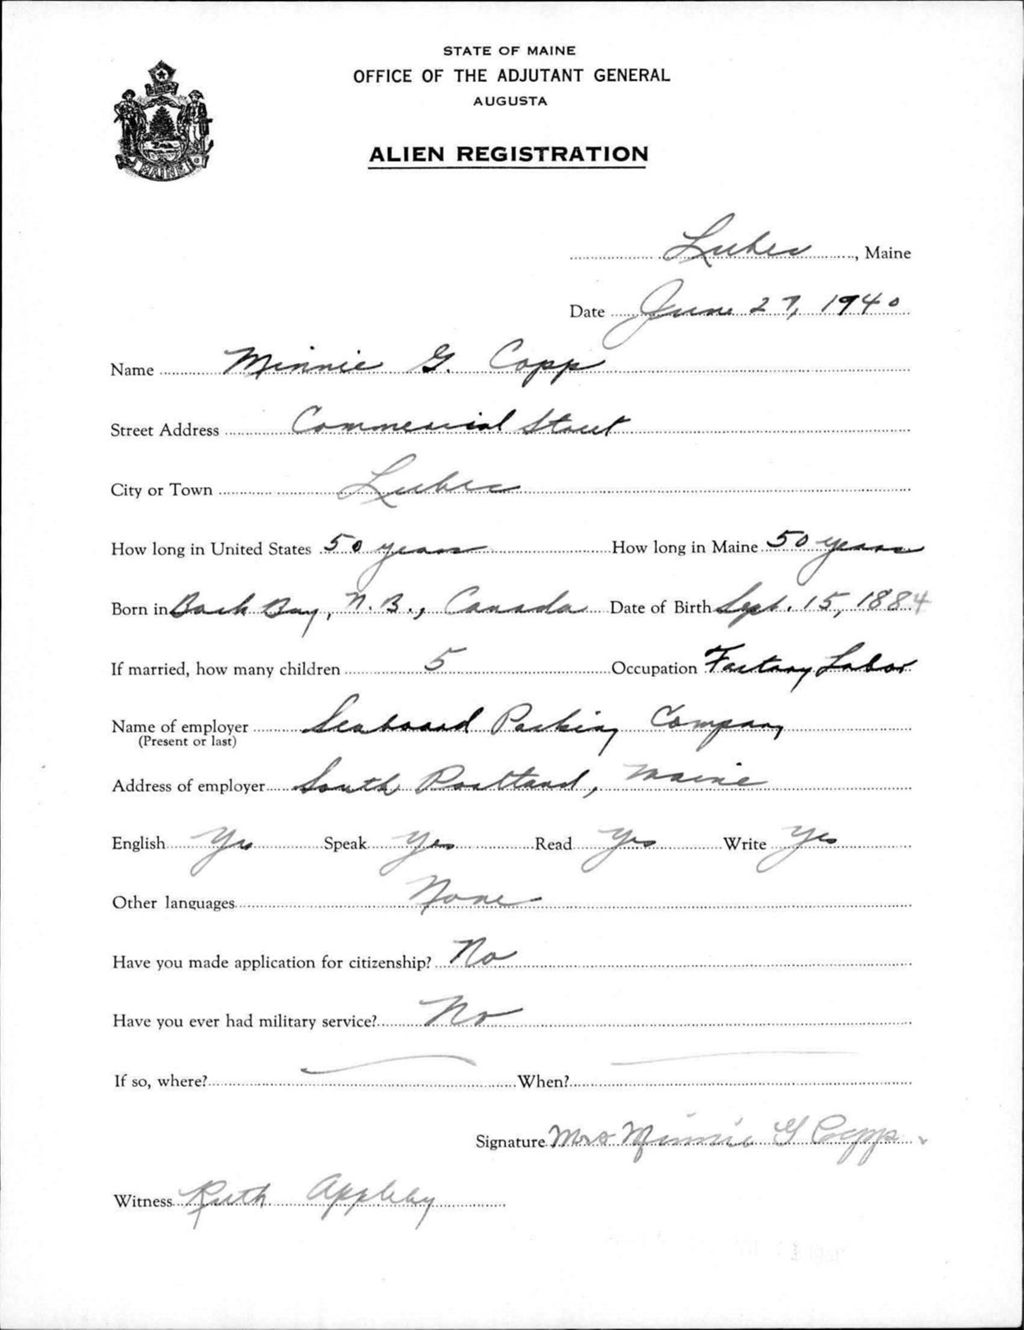 STATE OF MAINE
OFFICE OF THE ADJUTANT GENERAL
AUGUSTA
ALIEN REGISTRATION
Lubec, Maine
Date June 27, 1940
Name Minnie G. Copp
Street Address Commercial Street
City or Town Lubec
How long in United States 50 years How long in Maine 50 years
Born in Back Bay, N.B., Canada Date of Birth Sept. 15, 1884
If married, how many children 5 Occupation Factory Labor
Name of employer Seaboard Packing Company
(Present or last)
Address of employer South Portland, Maine
English Yes Speak Yes Read Yes Write Yes
Other languages None
Have you made application for citizenship? No
Have you ever had military service? No
If so, where? When?
Signature Mrs Minnie G Copp
Witness Ruth Appleby
MAINE